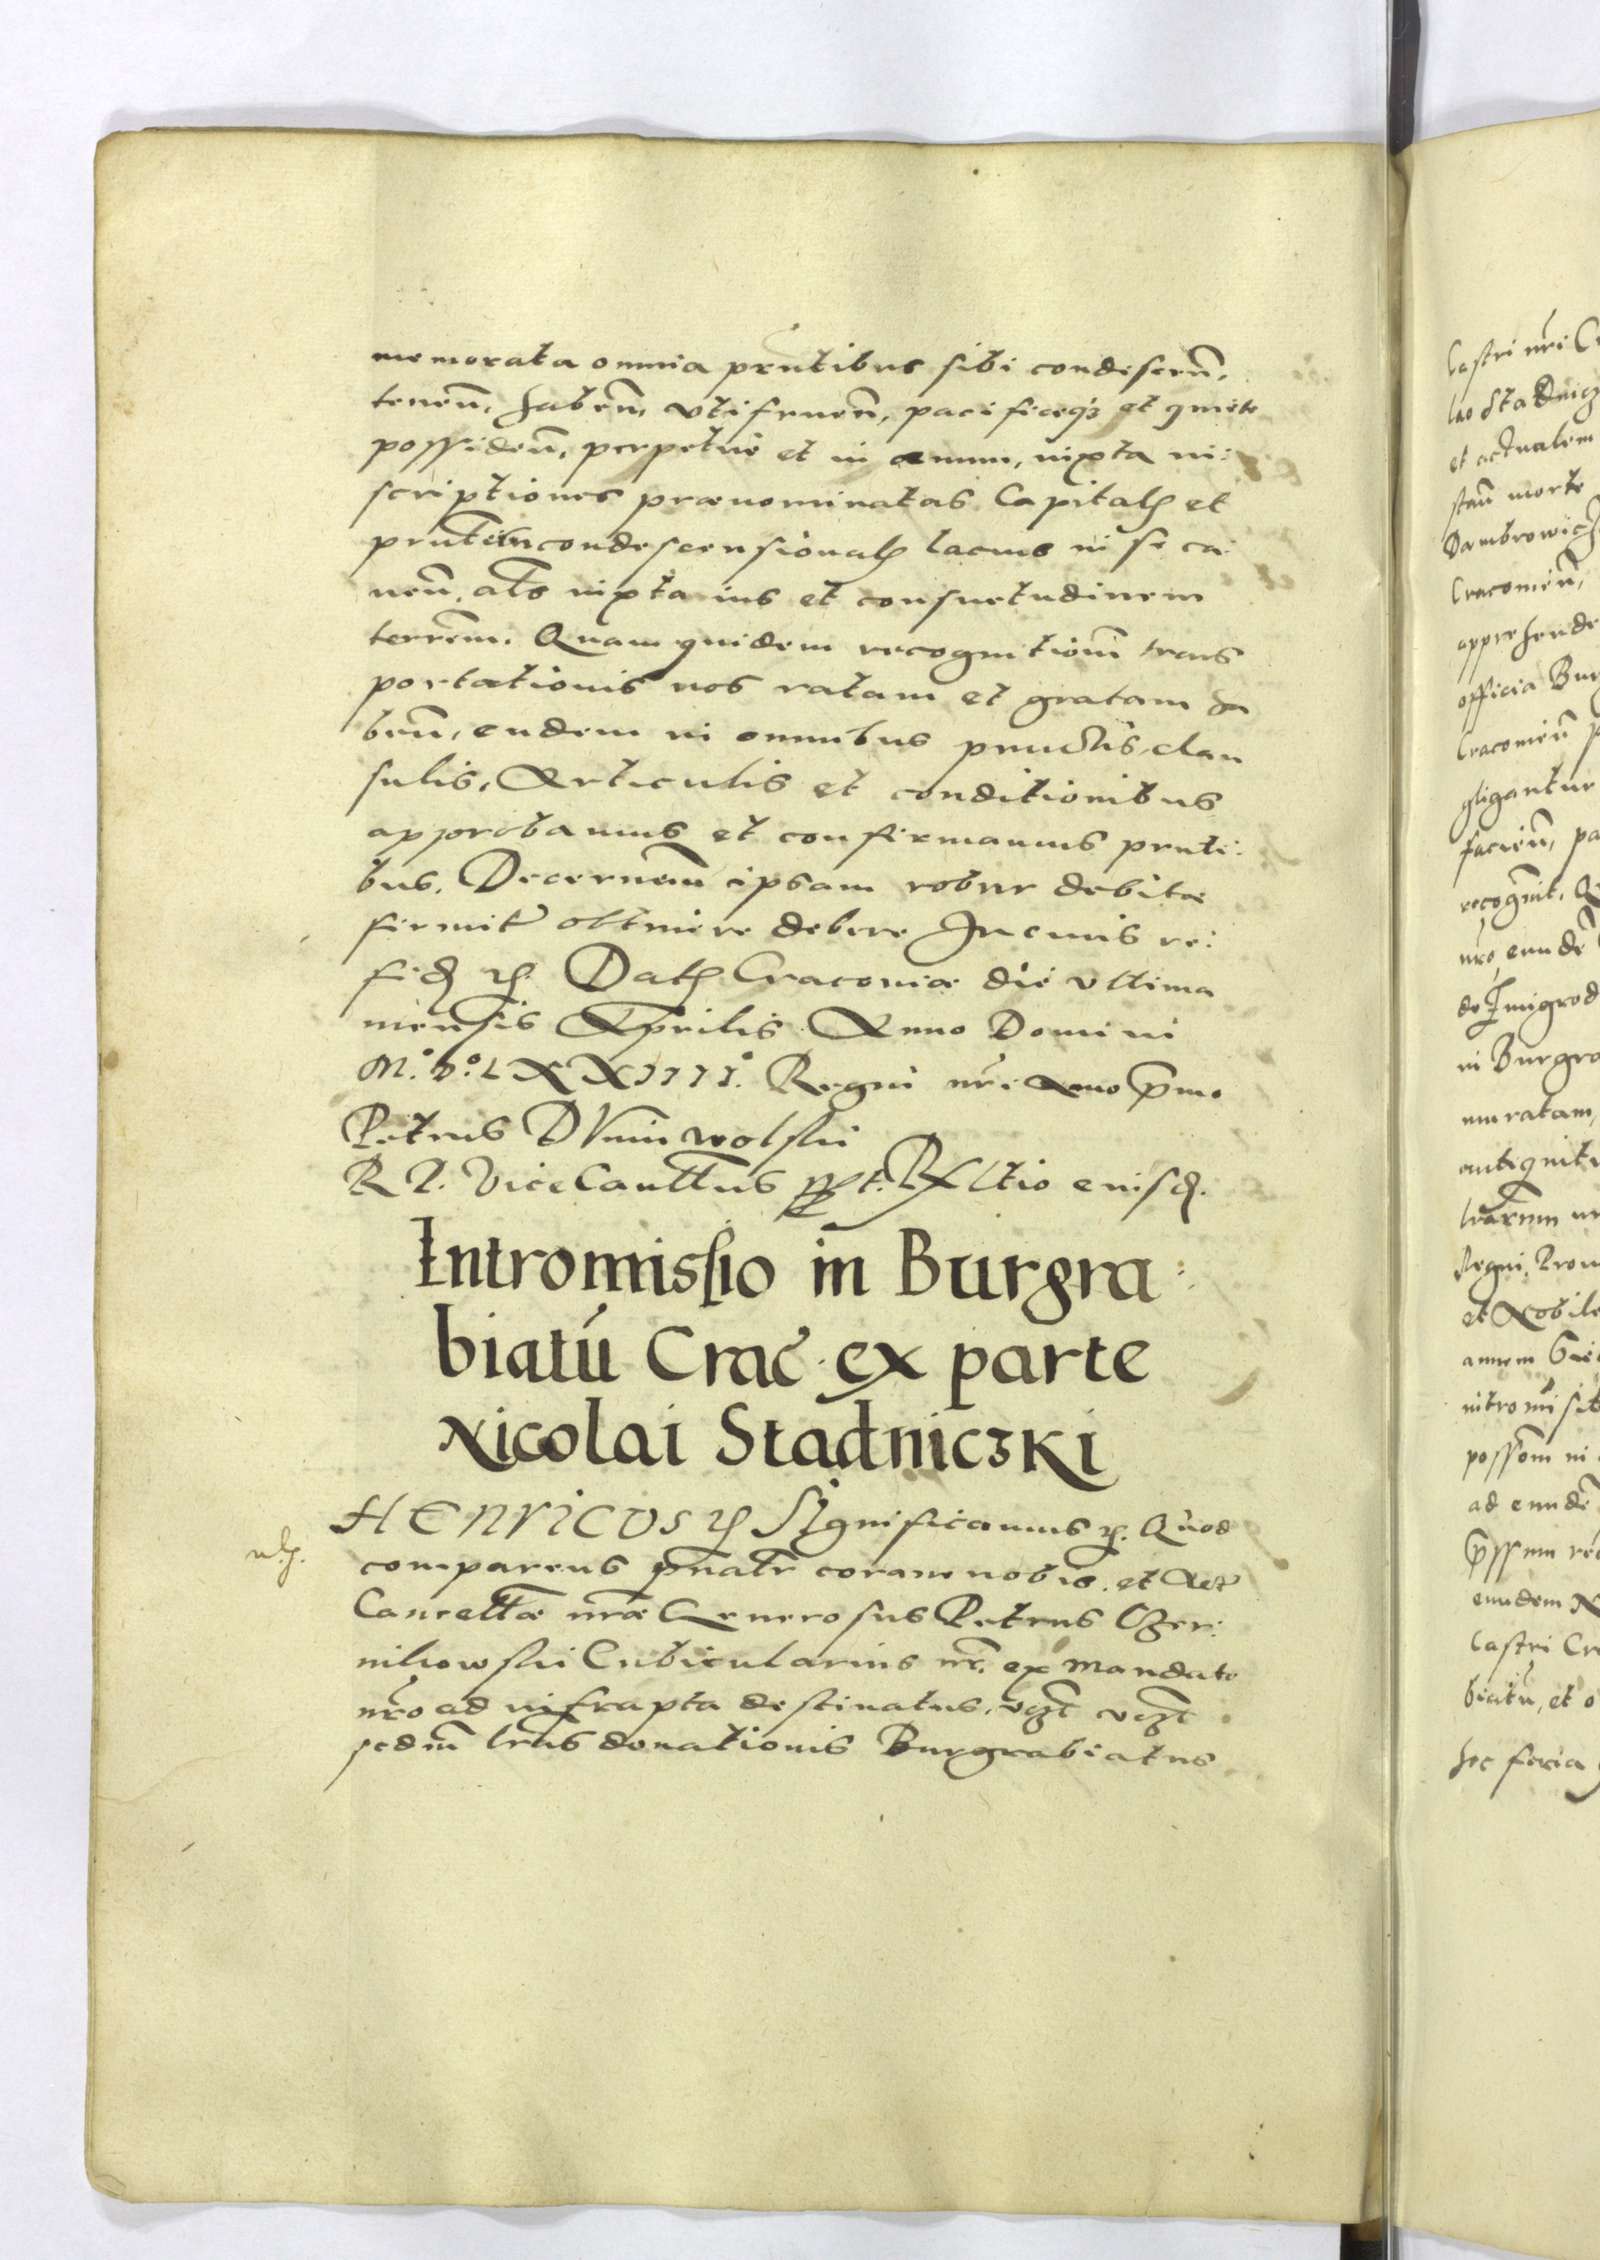 memorata omnia prntibus sibi condescen̄,
tenen̄, haben̄, vtifruen̄, pacificeqз et quiete
possiden̄, perpetue et in æuum, iuxta in:
scriptiones prænominatas Capitał et
prntem condescensionał lacius in se ca:
nen̄, als iuxta ius et consuetudinem
terrem̄. Quam quidem recognitionem̄ trans
portationis nos ratam et gratam ha
ben̄, eadem in omnibus punctis, clau
sulis, Articulis et conditionibus
approbamus et confirmamus prnti:
bus. Decernen̄ ipsam robur debitæ
firmit̄ obtinere debere In cuius rei
fid etc. Dat Cracoviæ die vltima
mensis Aprilis Anno Domini
M.º D.º LXXIIII.º Regni nr̄i Anno p̄mo
Petrus DVnin wolski
R P. ViceCanc̄llrus sst. Rltio eiusd.
Intromissio in Burgra:
biatú Crac̄. ex parte
Nicolai Stadniczki
HENRICVS etc Significamus etc. Quod
comparens p̄rnalr coram nobis. et Act̄
Cancellæ nr̄æ Generosus Petrus Czer:
nikowski Cubicularius nr̄. ex Mandato
nr̄o ad infrapta destinatus, vigt̄ vigt̄
sedm̄ lr̄as donationis Burgrabiatus
Castri nr̄i
lao Stadnicz
et actualem
morte
Dambrowicz
Cracovien̄,
apprehende
officia Bur
Cracovien̄
gligantur
facien̄, pa
recognit,
nr̄o, eundē
de Zmigrod
in Burgra
muratam,
antiquit
Regni, Prou
et Nobile
annem
intromisit
possem̄ in
ad eundē
eundem N
Castri Cr
biatū, et o
hec feria